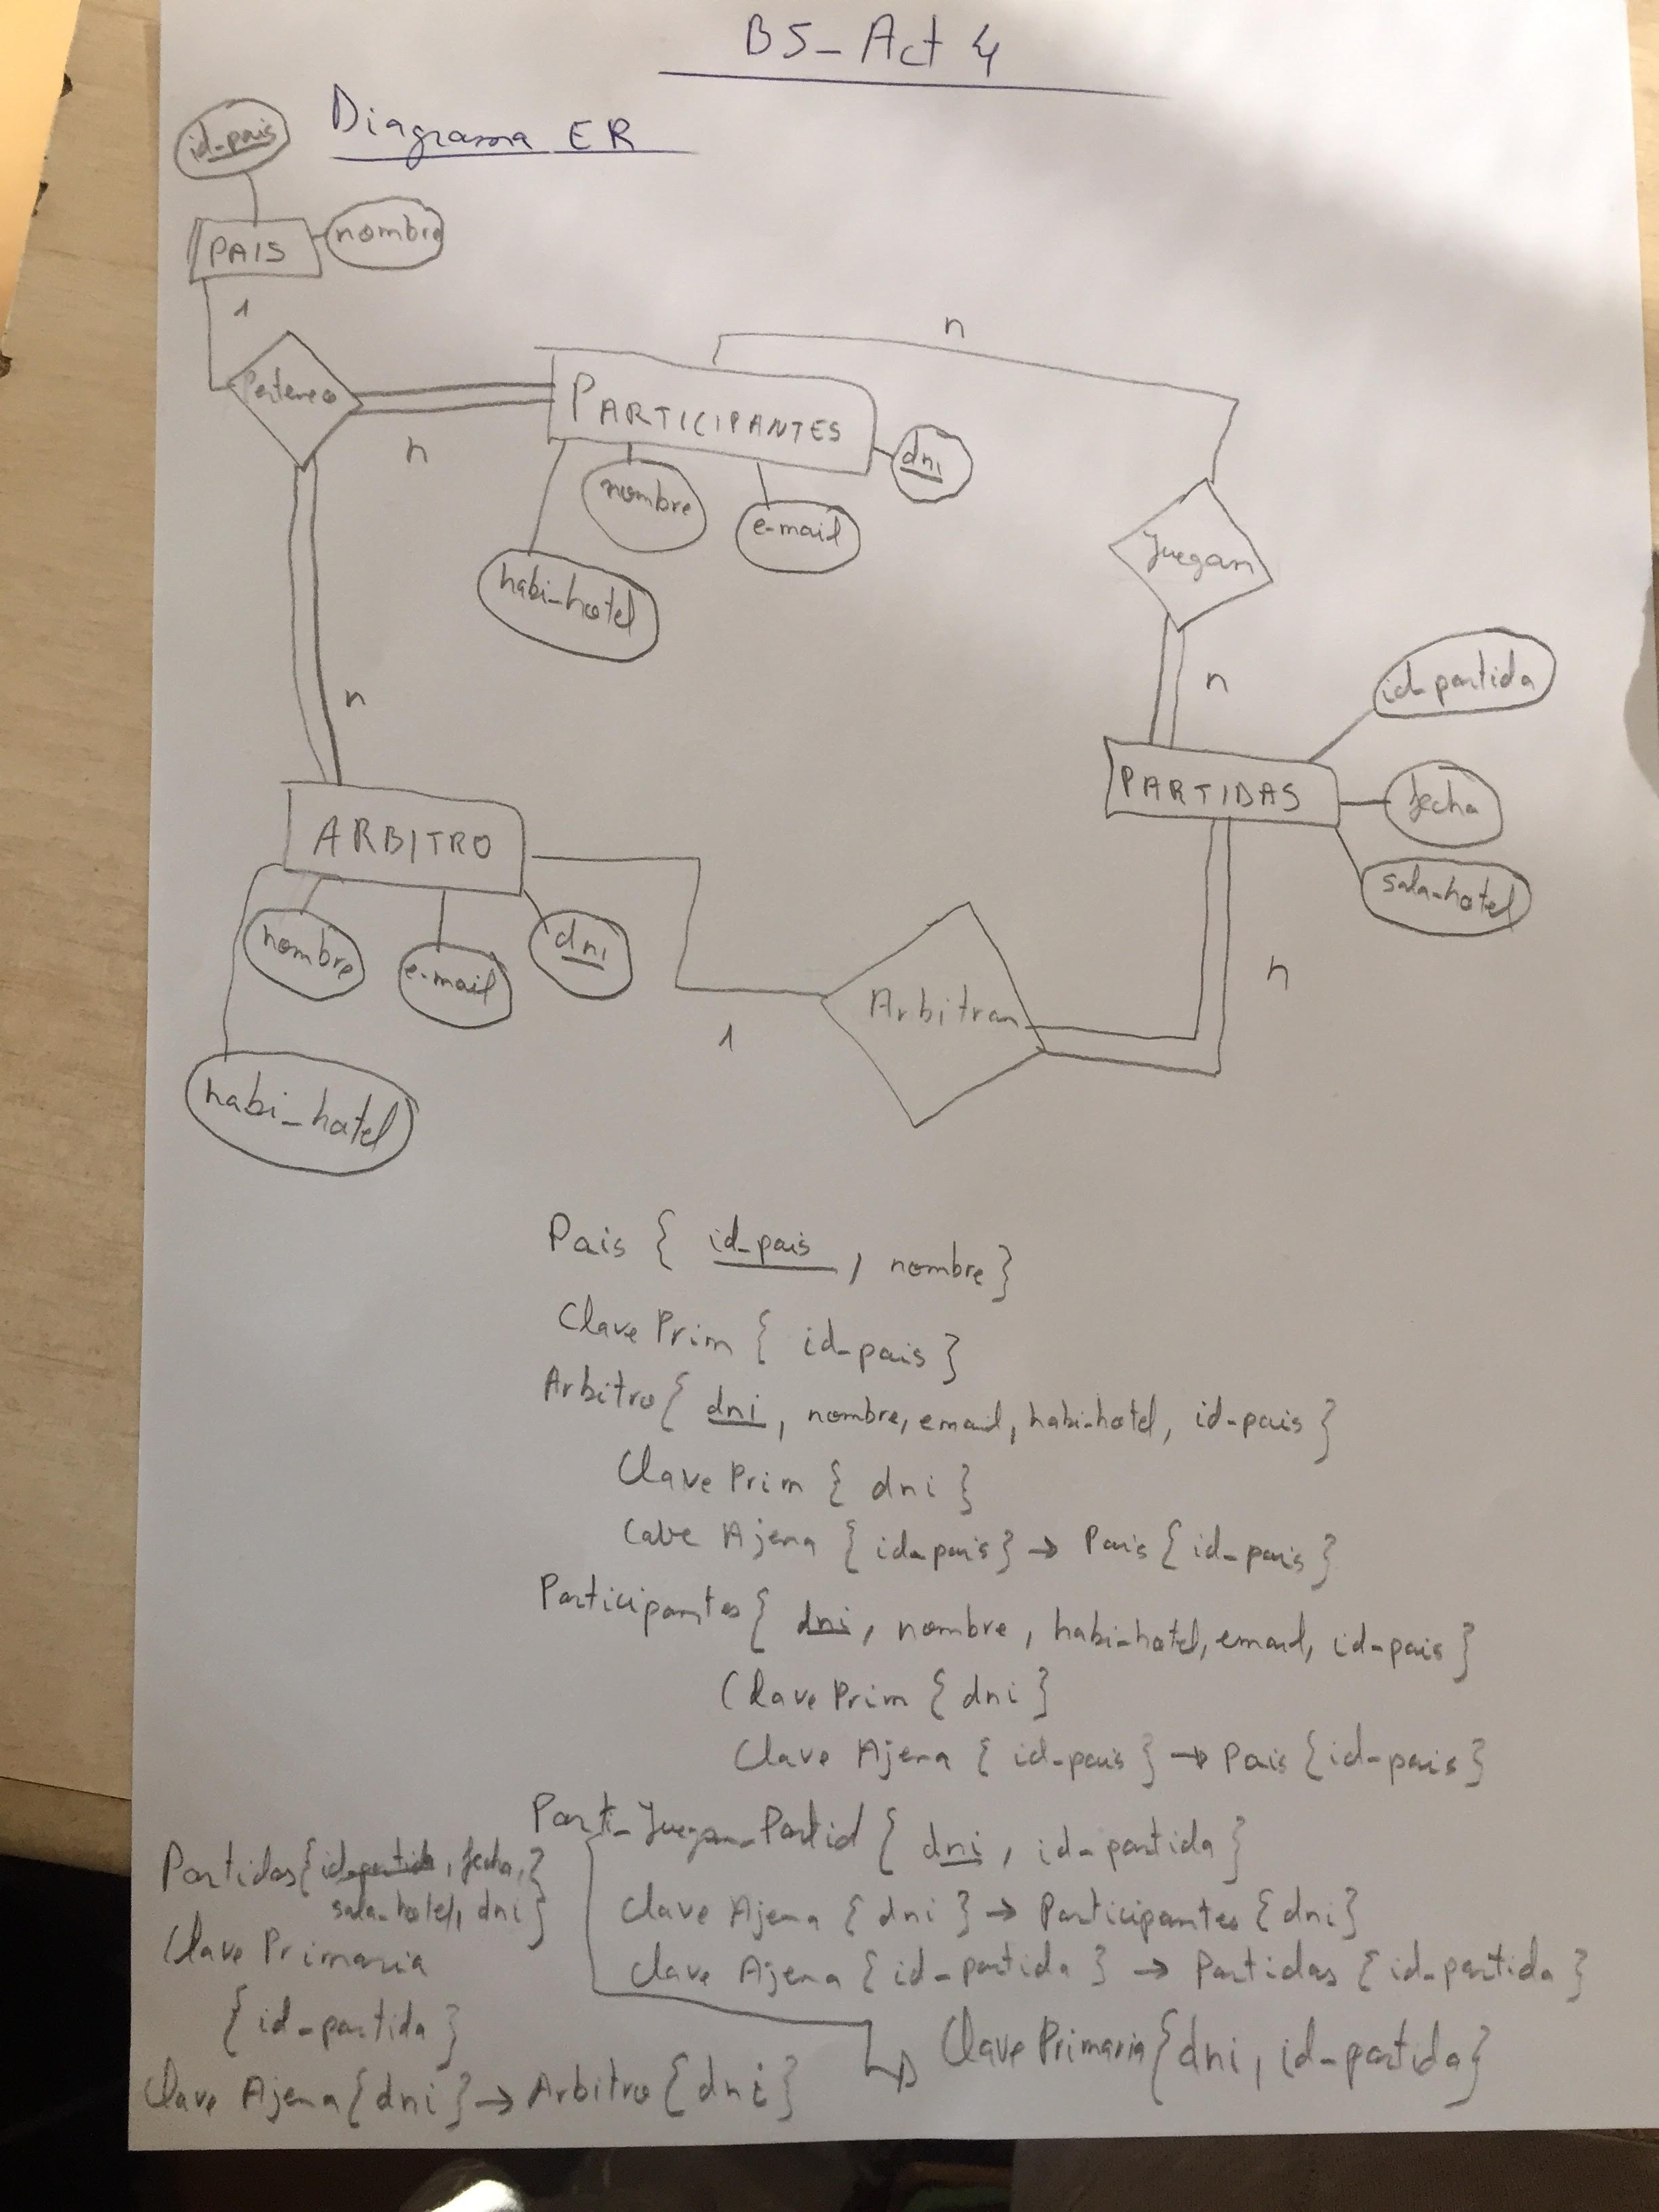 B5_Act 4
Diagrama ER
id-pais
PAIS
nombre
1
Pertenece
n
PARTICIPANTES
dni
nombre
e-mail
habi-hotel
n
Juegan
n
n
id-partida
PARTIDAS
fecha
sala-hotel
ARBITRO
nombre
e-mail
dni
habi_hotel
1
Arbitran
n
Pais { id_pais, nombre }
Clave Prim { id_pais }
Arbitro { dni, nombre, email, habi-hotel, id-pais }
Clave Prim { dni }
Calve Ajena { id-pais } → Pais { id_pais }
Participantes { dni, nombre, habi-hotel, email, id-pais }
Clave Prim { dni }
Clave Ajena { id-pais } → Pais { id-pais }
Parti_Juegan_Partid { dni, id-partida }
Clave Ajena { dni } → Participantes { dni }
Clave Ajena { id_partida } → Partidas { id-partida }
Clave Primaria { dni, id-partida }
Partidas { id-partida, fecha,
sala-hotel, dni }
Clave Primaria
{ id-partida }
Clave Ajena { dni } → Arbitro { dni }